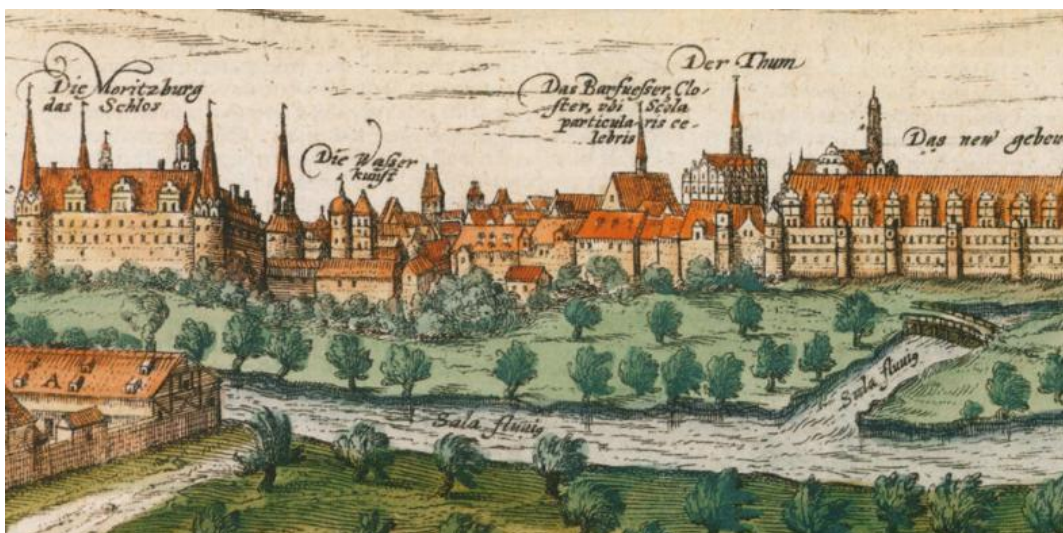 Die Moritzburg
das Schlos
Die Wasser
kunst
Das Barfuesser Clo-
ster, vbi Scola
particula-ris ce-
lebris
Der Thum
Das new gebew
A
Sala fluuig
Sala fluuig